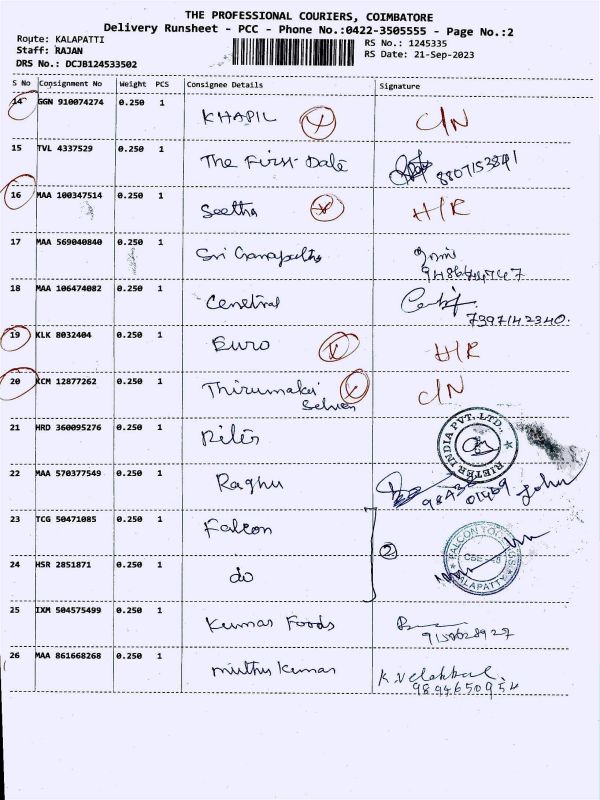 THE PROFESSIONAL COURIERS, COIMBATORE
Delivery Runsheet - PCC - Phone No.:0422-3505555 - Page No.:2
Route: KALAPATTI
Staff: RAJAN
DRS No.: DCJB124533502
RS No.: 1245335
RS Date: 21-Sep-2023
S No Consignment No Weight PCS Consignee Details Signature
14 GGN 910074274 0.250 1 KHAPIL C/N
15 TVL 4337529 0.250 1 The First Date
16 MAA 100347514 0.250 1 Seetha H/R
17 MAA 569040840 0.250 1 Sri Ganapathy
18 MAA 106474082 0.250 1 Cenetral 7397142340.
19 KLK 8032404 0.250 1 Euro H/R
20 KCM 12877262 0.250 1 C/N
Selven
21 HRD 360095276 0.250 1 RIETER INDIA PVT. LTD.,
22 MAA 570377549 0.250 1 Raghu John
23 TCG 50471085 0.250 1 Falcon
2
24 HSR 2851871 0.250 1 do
25 IXM 504575499 0.250 1 Kumar Foods
26 MAA 861668268 0.250 1 muthu kumar
9894650954